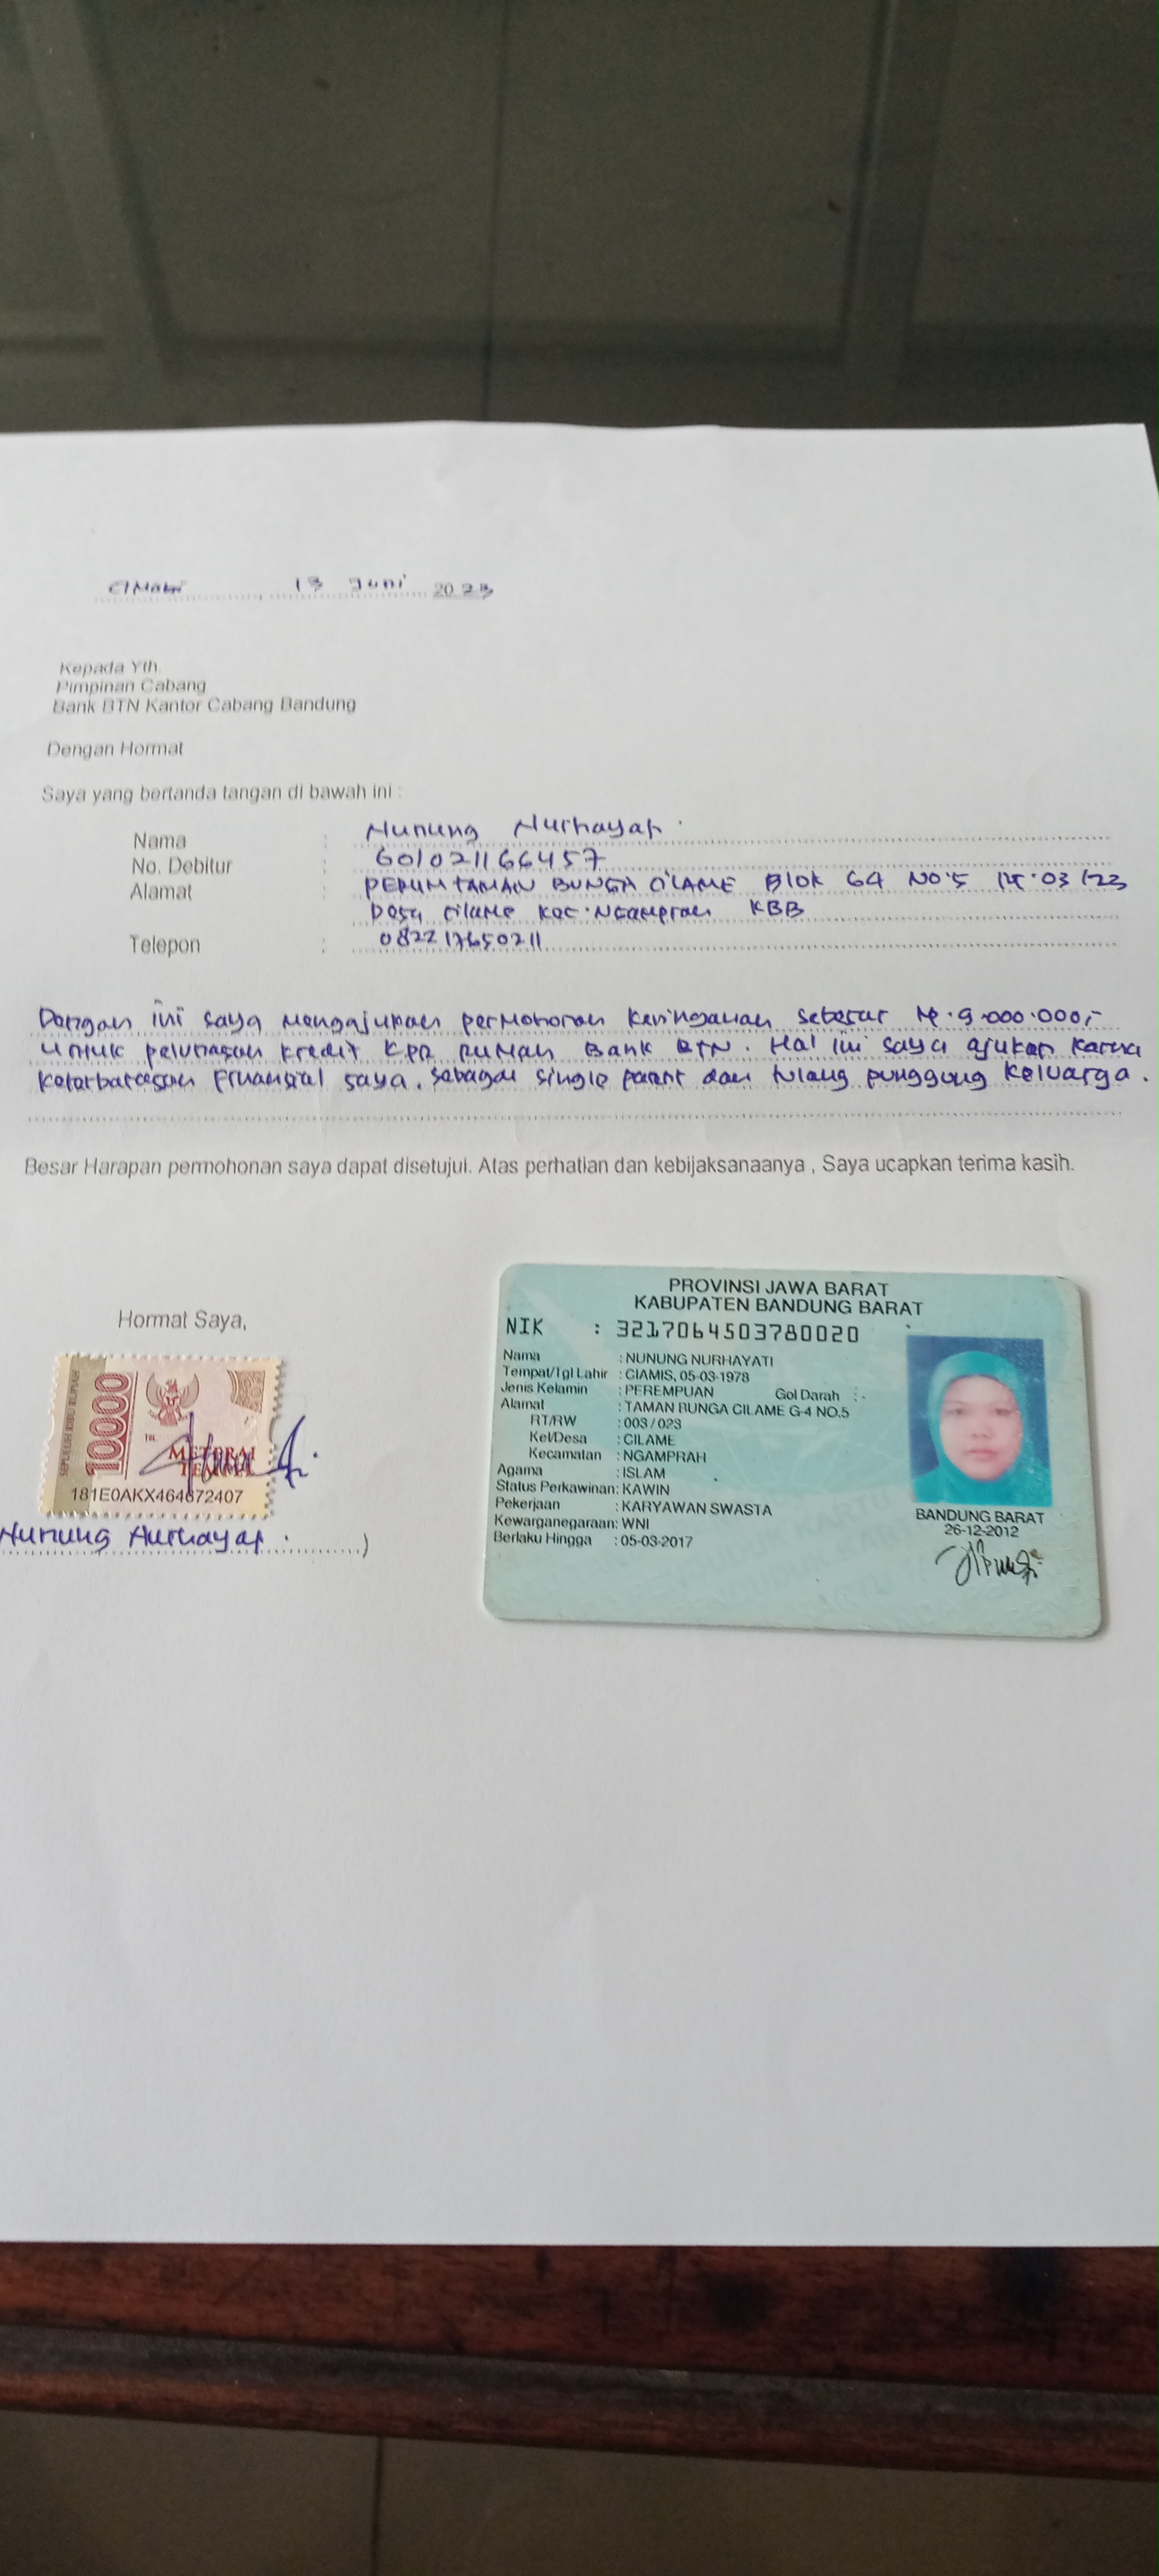 Cimahi, 13 Juni 2023
Kepada Yth
Pimpinan Cabang
Bank BTN Kantor Cabang Bandung
Dengan Hormat
Saya yang bertanda tangan di bawah ini :
Nama : Nunung Nurhayati
No. Debitur : 601021166457
Alamat : PERUM TAMAN BUNGA CILAME Blok G4 NO.5 RT.03/23
Desa Cilame Kec.Ngamprah KBB
Telepon : 082217650211
Dengan ini saya mengajukan permohonan keringanan sebesar Rp.9.000.000,-
untuk pelunasan kredit KPR RUMAH Bank BTN. Hal ini saya ajukan karna
keterbatasan Finansial saya. sebagai single parent dan tulang punggung keluarga.
Besar Harapan permohonan saya dapat disetujui. Atas perhatian dan kebijaksanaanya , Saya ucapkan terima kasih.
Hormat Saya,
SEPULUH RIBU RUPIAH
10000
TGL.
METERAI
TEMPEL
181E0AKX464672407
Nunung Nurhayati )
PROVINSI JAWA BARAT
KABUPATEN BANDUNG BARAT
NIK : 3217064503780020
Nama : NUNUNG NURHAYATI
Tempat/Tgl Lahir : CIAMIS, 05-03-1978
Jenis Kelamin : PEREMPUAN Gol Darah : -
Alamat : TAMAN BUNGA CILAME G-4 NO.5
RT/RW : 003 / 023
Kel/Desa : CILAME
Kecamatan : NGAMPRAH
Agama : ISLAM
Status Perkawinan: KAWIN
Pekerjaan : KARYAWAN SWASTA
Kewarganegaraan: WNI
Berlaku Hingga : 05-03-2017
BANDUNG BARAT
26-12-2012